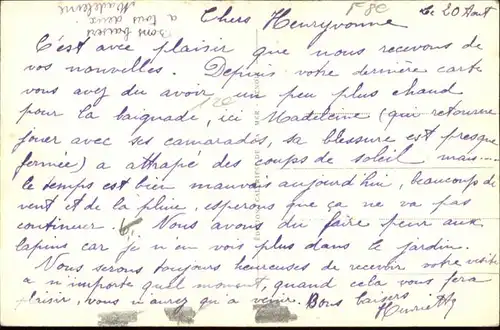 Bons baisers
à tous deux.
Madeleine
F80
Le 20 Août
Chers Henryvonne
C'est avec plaisir que nous recevons de
vos nouvelles. Depuis votre dernière carte
vous avez du avoir un peu plus chaud
pour la baignade, ici Madeleine (qui retourne
jouer avec ses camarades, sa blessure est presque
fermée) a attrapé des coups de soleil mais...
le temps est bien mauvais aujourd'hui, beaucoup de
vent et de la pluie, esperons que ça ne va pas
continuer. Nous avons du faire peur aux
lapins car je n'en vois plus dans le jardin.
Nous serons toujours heureuses de recevoir votre visite
a n'importe quel moment, quand cela vous fera
plaisir, vous n'avez qu'a venir. Bons baisers
Henriette